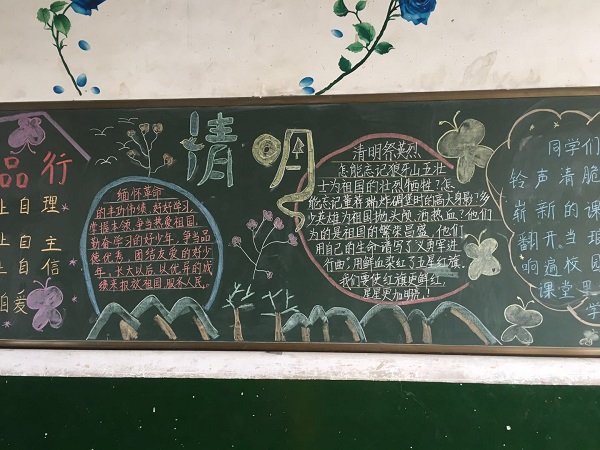 品行
上自理
上自主
自信
爱
清明
缅怀革命
的丰功伟绩,好好学习,
掌握本领,争当热爱祖国,
勤奋学习的好少年,争当品
德优秀、团结友爱的好少
年,长大以后,以优异的成
绩来报效祖国,服务人民。
清明祭英烈
怎能忘记狼牙山五壮
士为祖国的壮烈牺牲?怎
能忘记董存瑞炸碉堡时的高大身影?多
少英雄为祖国抛头颅、洒热血?他们
为的是祖国的繁荣昌盛,他们
用自己的生命谱写了义勇军进
行曲,用鲜血染红了五星红旗,
我们要使红旗更鲜红,
星星更加明亮!
同学们
铃声清脆
崭新的课
翻开,当琅
响遍校园
课堂里
学